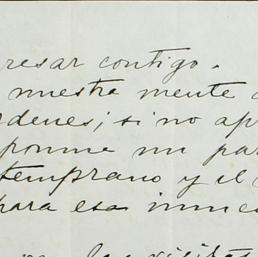 resar contigo.
nuestra mente
rdenes; si no apr
ponme un pa
temprano y el
para esa inme
las visitas